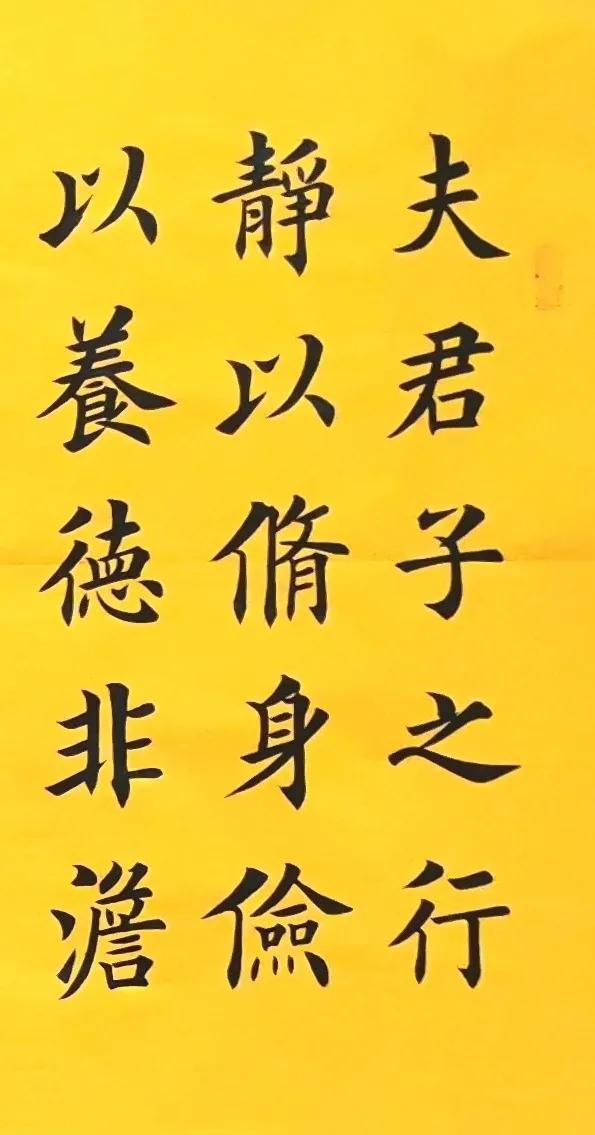 夫君子之行
靜以脩身儉
以養徳非澹